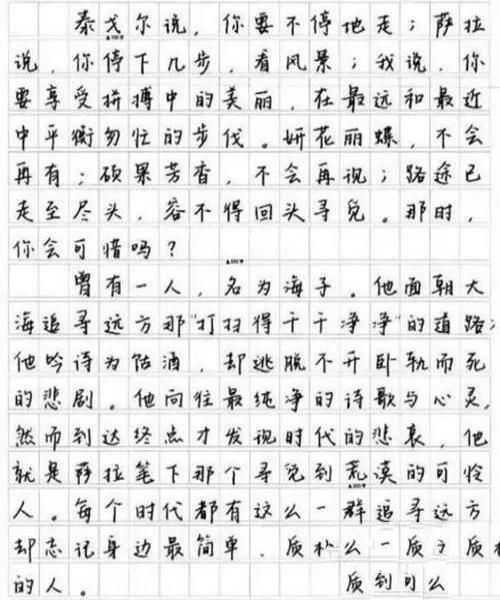 泰戈尔说，你要不停地走；萨拉
说，你停下几步，看风景；我说，你
要享受拼搏中的美丽，在最远和最近
中平衡匆忙的步伐。妍花丽蝶，不会
再有；硕果芳香，不会再说；路途已
走至尽头，容不得回头寻觅。那时，
你会可惜吗？
曾有一人，名为海子。他面朝大
海追寻远方那“打扫得干干净净”的道路；
他吟诗为酤酒，却逃脱不开卧轨而死
的悲剧。他向往最纯净的诗歌与心灵，
然而到达终点才发现时代的悲哀，他
就是萨拉笔下那个寻觅到荒漠的可怜
人。每个时代都有这么一群追寻远方
却忘记身边最简单、质朴
的人。